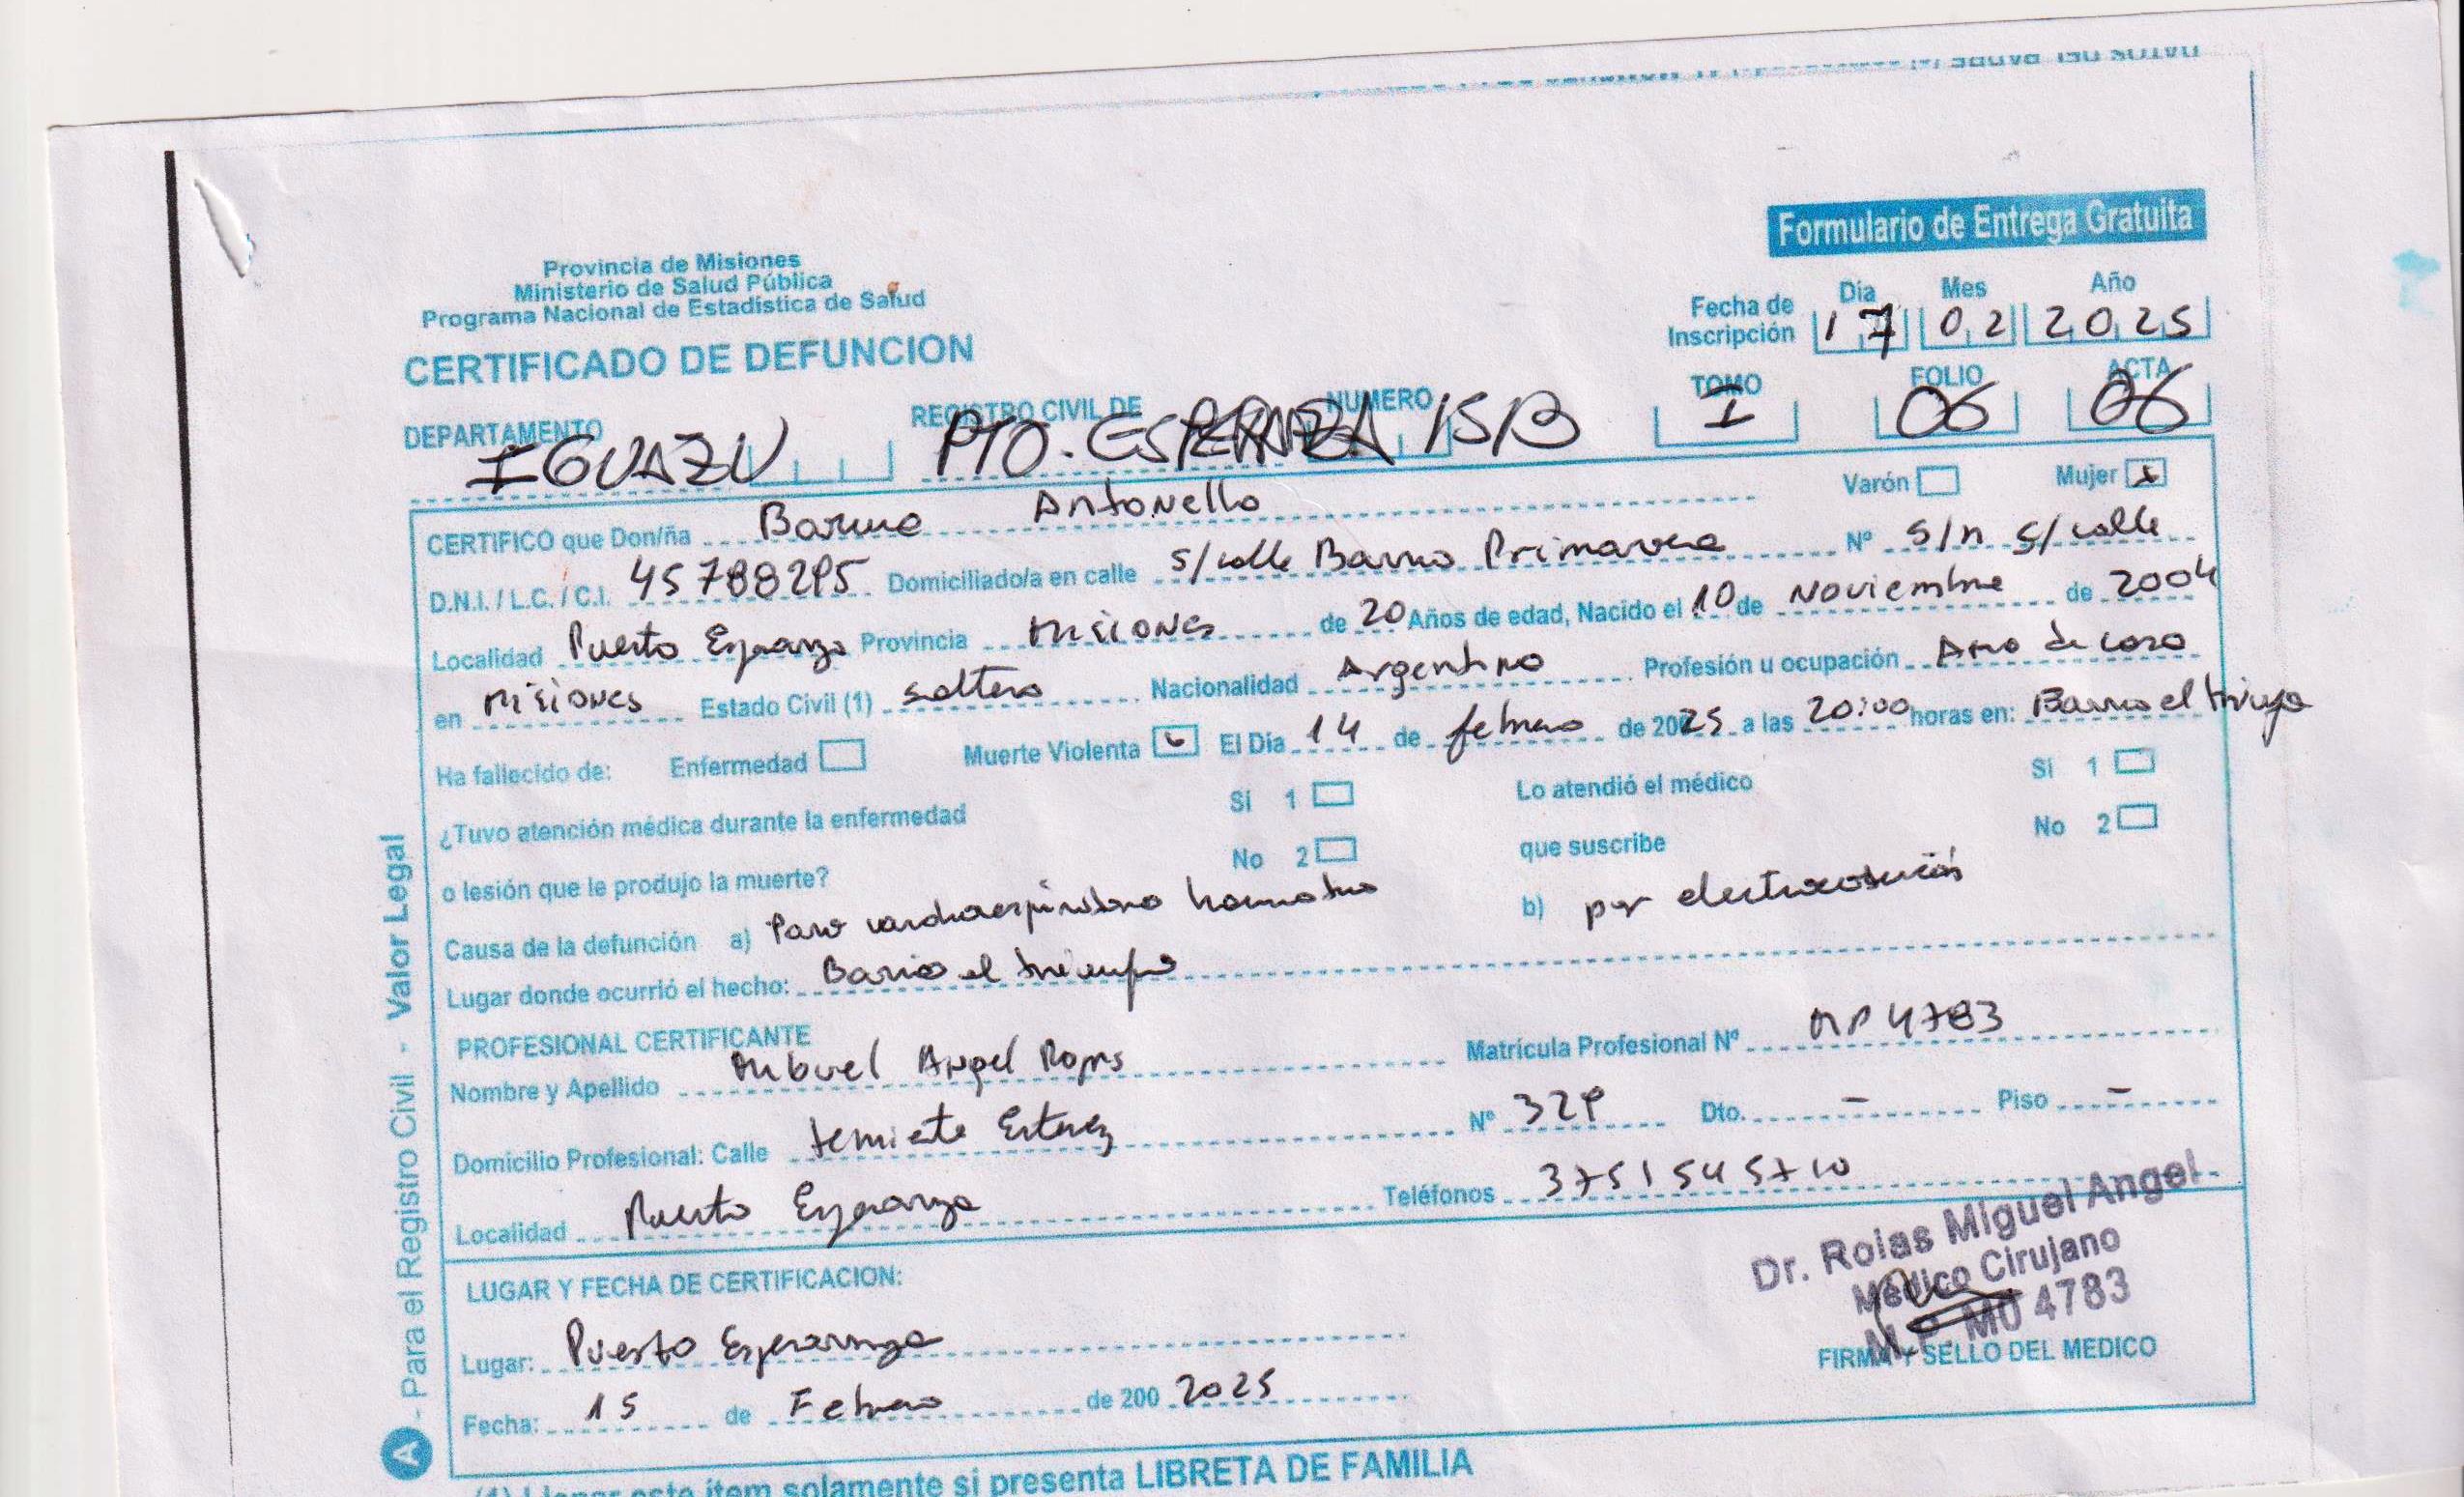 Formulario de Entrega Gratuita
Provincia de Misiones
Ministerio de Salud Pública
Programa Nacional de Estadística de Salud
CERTIFICADO DE DEFUNCION
Fecha de Inscripción Día 17 Mes 02 Año 2025
DEPARTAMENTO IGUAZU REGISTRO CIVIL DE PTO. ESPERANZA NUMERO 1513 TOMO I FOLIO 06 ACTA 06
CERTIFICO que Don/ña Antonella Varón Mujer x
D.N.I. / L.C. / C.I. 45788295 Domiciliado/a en calle s/calle Barrio Primavera Nº s/n s/calle
Localidad Puerto Esperanza Provincia Misiones de 20 Años de edad, Nacido el 10 de Noviembre de 2004
en Misiones Estado Civil (1) soltera Nacionalidad Argentina Profesión u ocupación Ama de casa
Ha fallecido de: Enfermedad Muerte Violenta El Día 14 de febrero de 20025 a las 20:00 horas en: Barrio el triunfo
¿Tuvo atención médica durante la enfermedad Si 1 Lo atendió el médico Si 1
o lesión que le produjo la muerte? No 2 que suscribe No 2
Causa de la defunción a) Paro cardiorespiratorio traumatico b) por electrocución
Lugar donde ocurrió el hecho: Barrio el triunfo
PROFESIONAL CERTIFICANTE
Nombre y Apellido Miguel Angel Rojas Matrícula Profesional Nº MP 4783
Domicilio Profesional: Calle teniente Estevez Nº 329 Dto. - Piso -
Localidad Puerto Esperanza Teléfonos 3751545710
LUGAR Y FECHA DE CERTIFICACION:
Lugar: Puerto Esperanza
Fecha: 15 de Febrero de 200 2025
Dr. Rojas Miguel Angel
Médico Cirujano
M.P. MU 4783
FIRMA Y SELLO DEL MEDICO
A - Para el Registro Civil - Valor Legal
(1) Llenar este ítem solamente si presenta LIBRETA DE FAMILIA